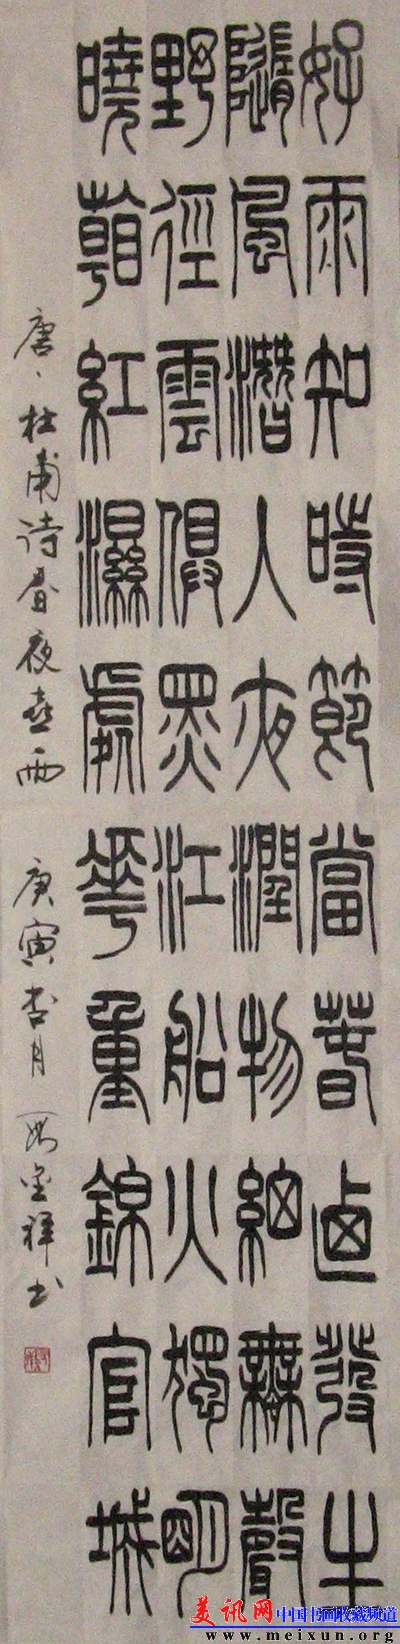 好雨知時節當春迺發生
隨風潛入夜潤物細無聲
野徑雲俱黑江船火獨明
曉看紅濕處花重錦官城
唐、杜甫诗春夜喜雨
庚寅杏月
美讯网
中国书画收藏频道
www.meixun.org